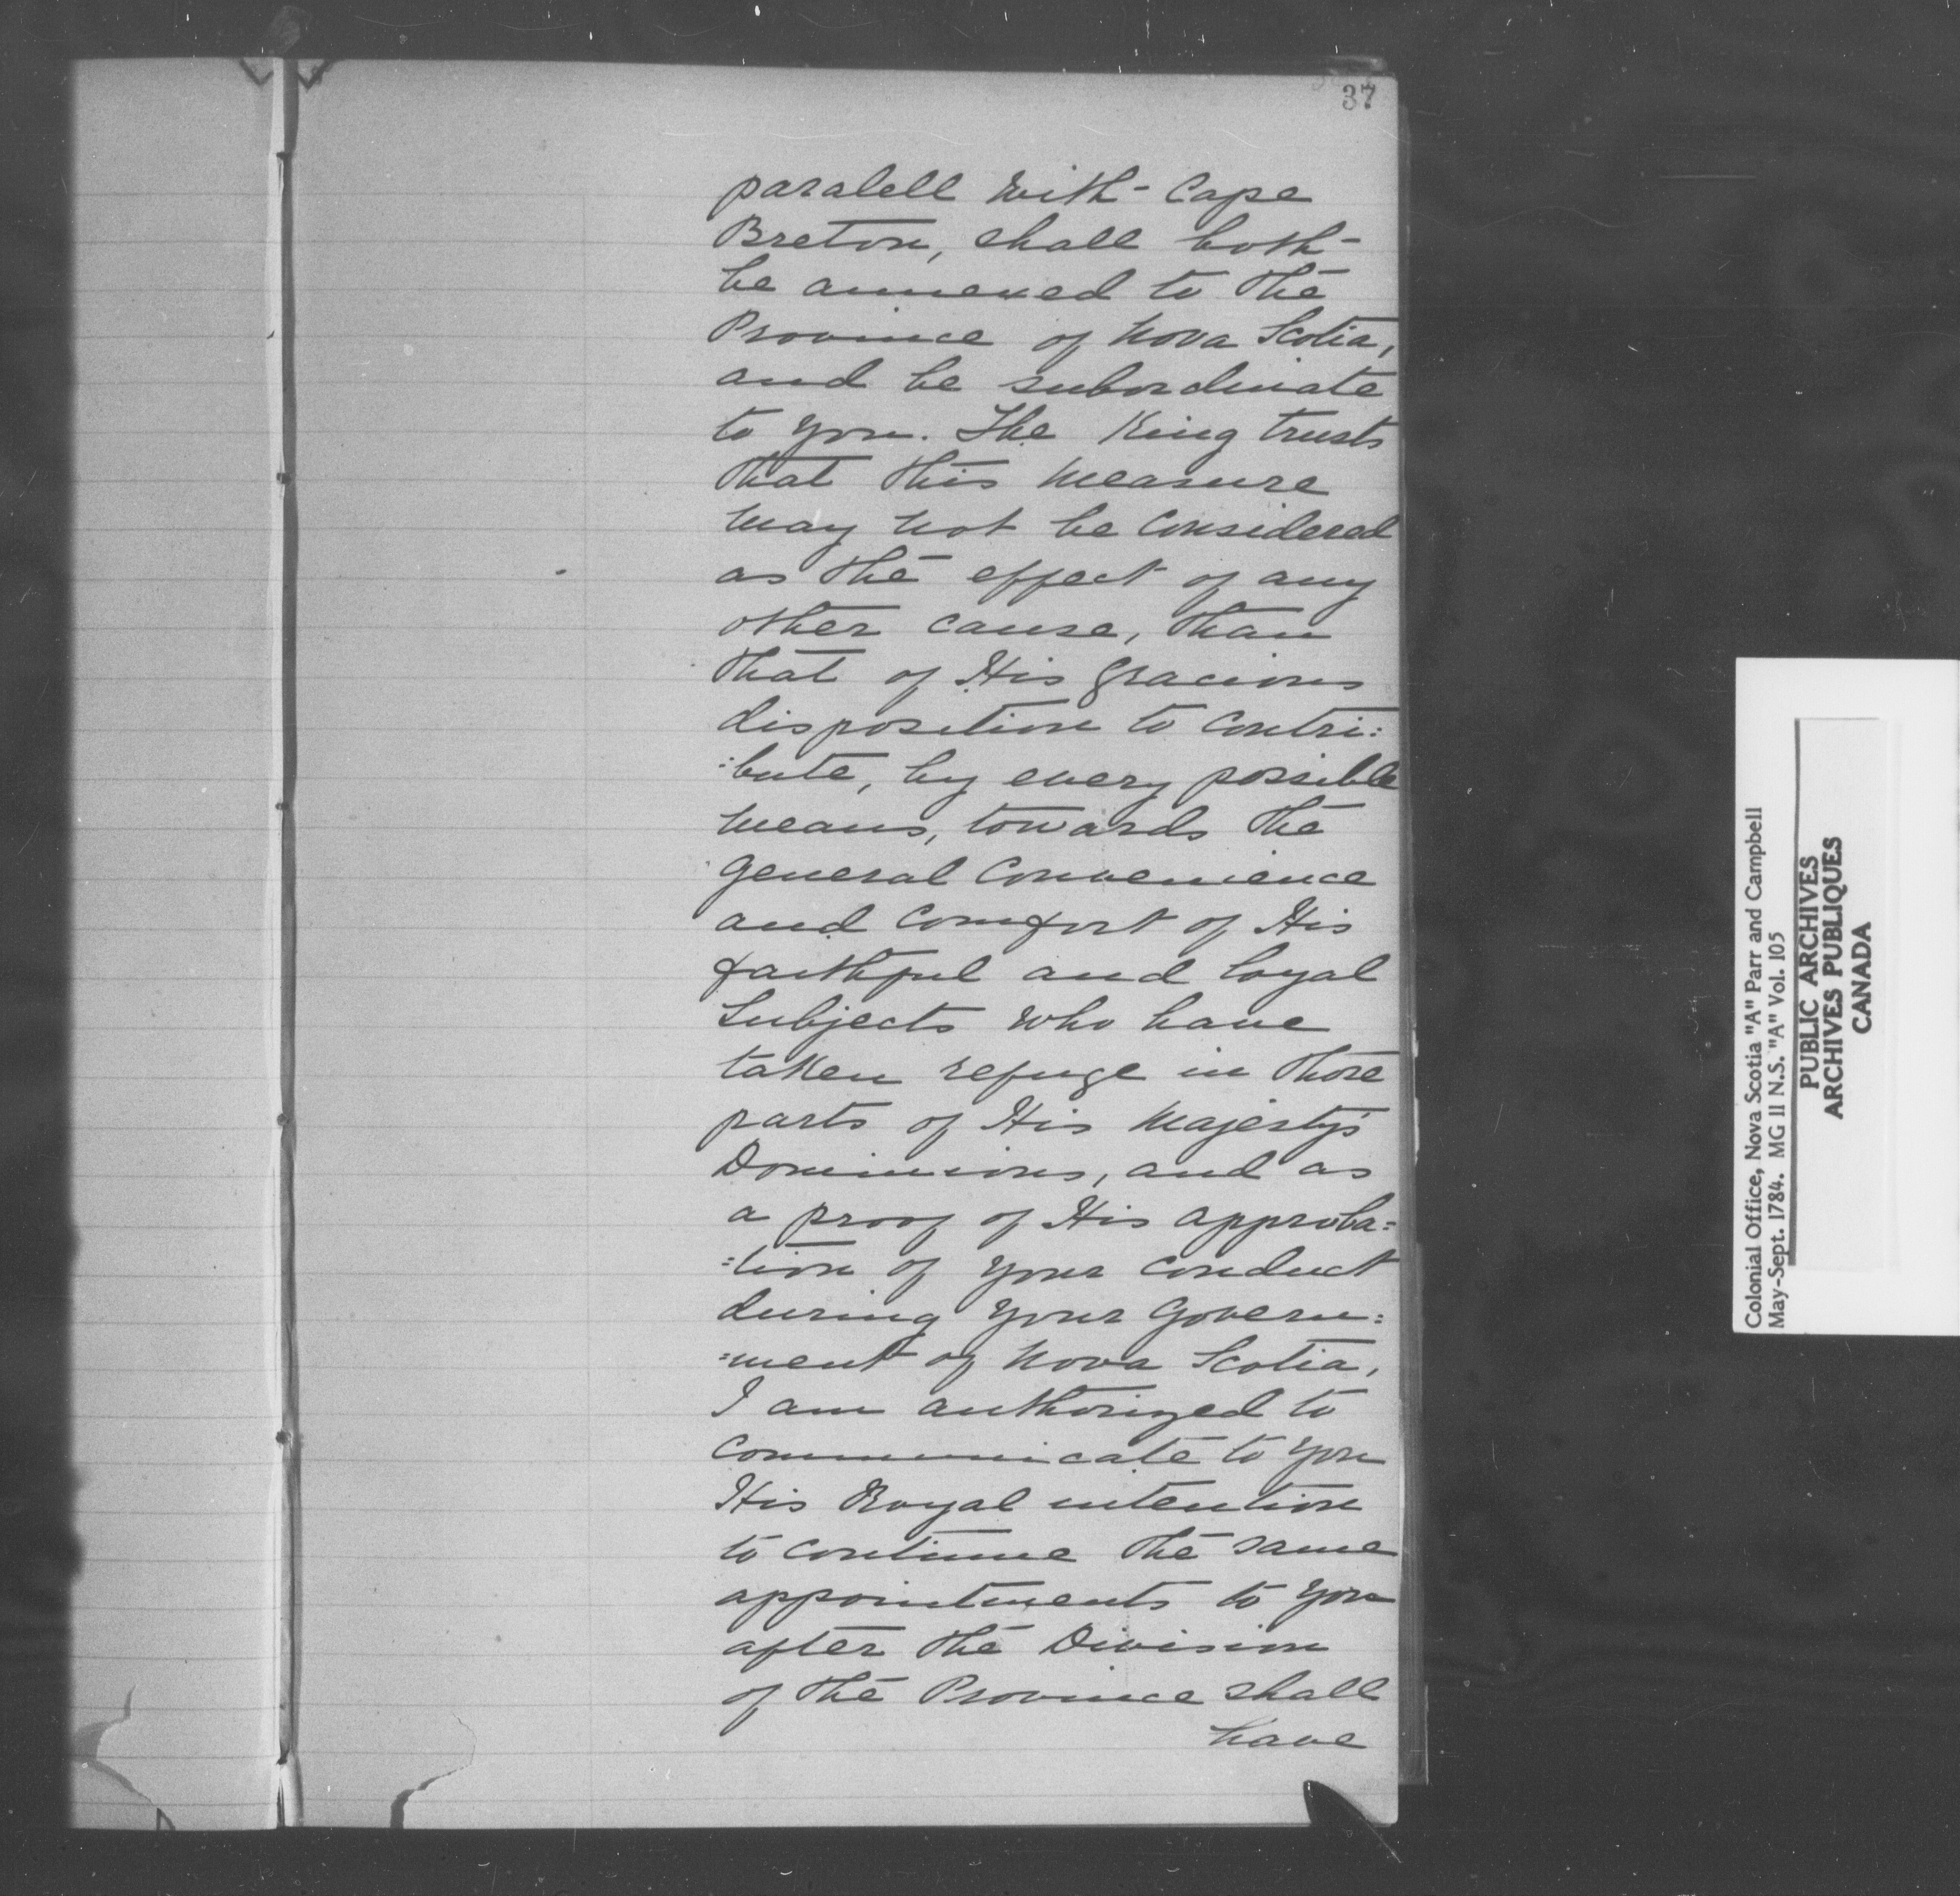 37
paralell with Cape
Breton, shall both
be annexed to the
Province of Nova Scotia,
and be subordinate
to you. The King trusts
that this measure
may not be considered
as the effect of any
other cause, than
that of His gracious
disposition to contri:
:bute, by every possible
means, towards the
general Convenience
and Comfort of His
faithful and loyal
Subjects who have
taken refuge in those
parts of His Majesty's
Dominions, and as
a proof of His approba=
=tion of your conduct
during your Govern:
:ment of Nova Scotia,
I am authorized to
communicate to you
His Royal intention
to continue the same
appointments to you
after the Division
of the Province shall
have
Colonial Office, Nova Scotia "A" Parr and Campbell
May-Sept. 1784. MG 11 N.S. "A" Vol. 105
PUBLIC ARCHIVES
ARCHIVES PUBLIQUES
CANADA